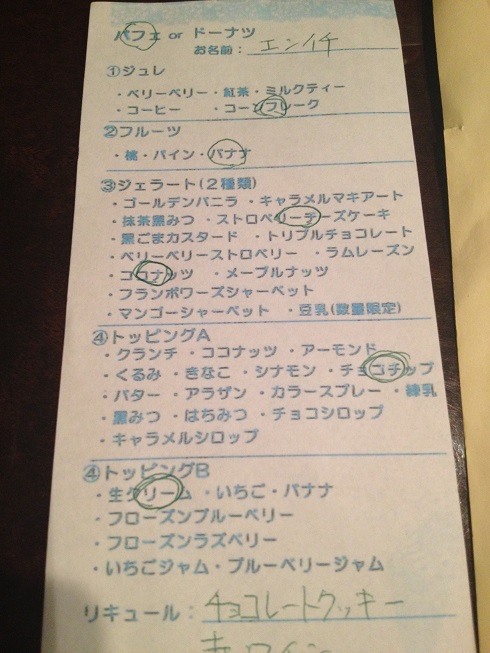 パフェ or ドーナツ
お名前： エンイチ
①ジュレ
・ベリーベリー・紅茶・ミルクティー
・コーヒー ・コーンフレーク
②フルーツ
・桃・パイン・バナナ
③ジェラート(２種類)
・ゴールデンバニラ ・キャラメルマキアート
・抹茶黒みつ ・ストロベリーチーズケーキ
・黒ごまカスタード ・トリプルチョコレート
・ベリーベリーストロベリー ・ラムレーズン
・ココナッツ ・メープルナッツ
・フランボワーズシャーベット
・マンゴーシャーベット ・豆乳(数量限定)
④トッピングA
・クランチ ・ココナッツ ・アーモンド
・くるみ ・きなこ ・シナモン ・チョコチップ
・バター ・アラザン ・カラースプレー ・練乳
・黒みつ ・はちみつ ・チョコシロップ
・キャラメルシロップ
④トッピングB
・生クリーム ・いちご・バナナ
・フローズンブルーベリー
・フローズンラズベリー
・いちごジャム・ブルーベリージャム
リキュール： チョコレートクッキー